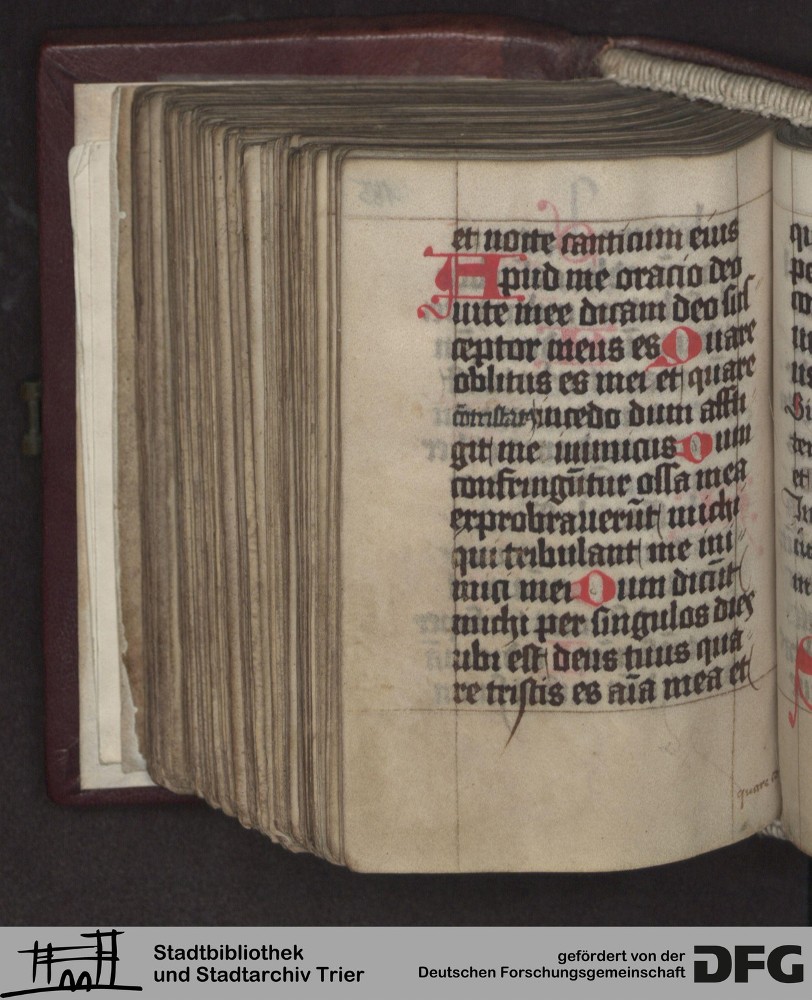 et nocte canticum eius
Apud me oracio deo
uite mee dicam deo sus
ceptor meus es Quare
oblitus es mei et quare
cōtristatus incedo dum affli
git me inimicus Dum
confringūtur ossa mea
exprobrauerūt michi
qui tribulant me ini
mici mei Dum dicūt
michi per singulos dies
ubi est deus tuus qua
re tristis es aīa mea et
quare
Stadtbibliothek
und Stadtarchiv Trier
gefördert von der
Deutschen Forschungsgemeinschaft
DFG